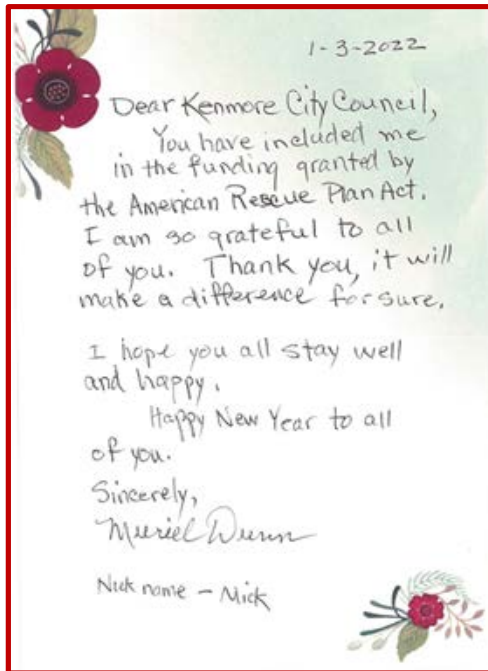 1-3-2022
Dear Kenmore City Council,
You have included me
in the funding granted by
the American Rescue Plan Act.
I am so grateful to all
of you. Thank you, it will
make a difference for sure.
I hope you all stay well
and happy.
Happy New Year to all
of you.
Sincerely,
Muriel Dunn
Nick name - Mick